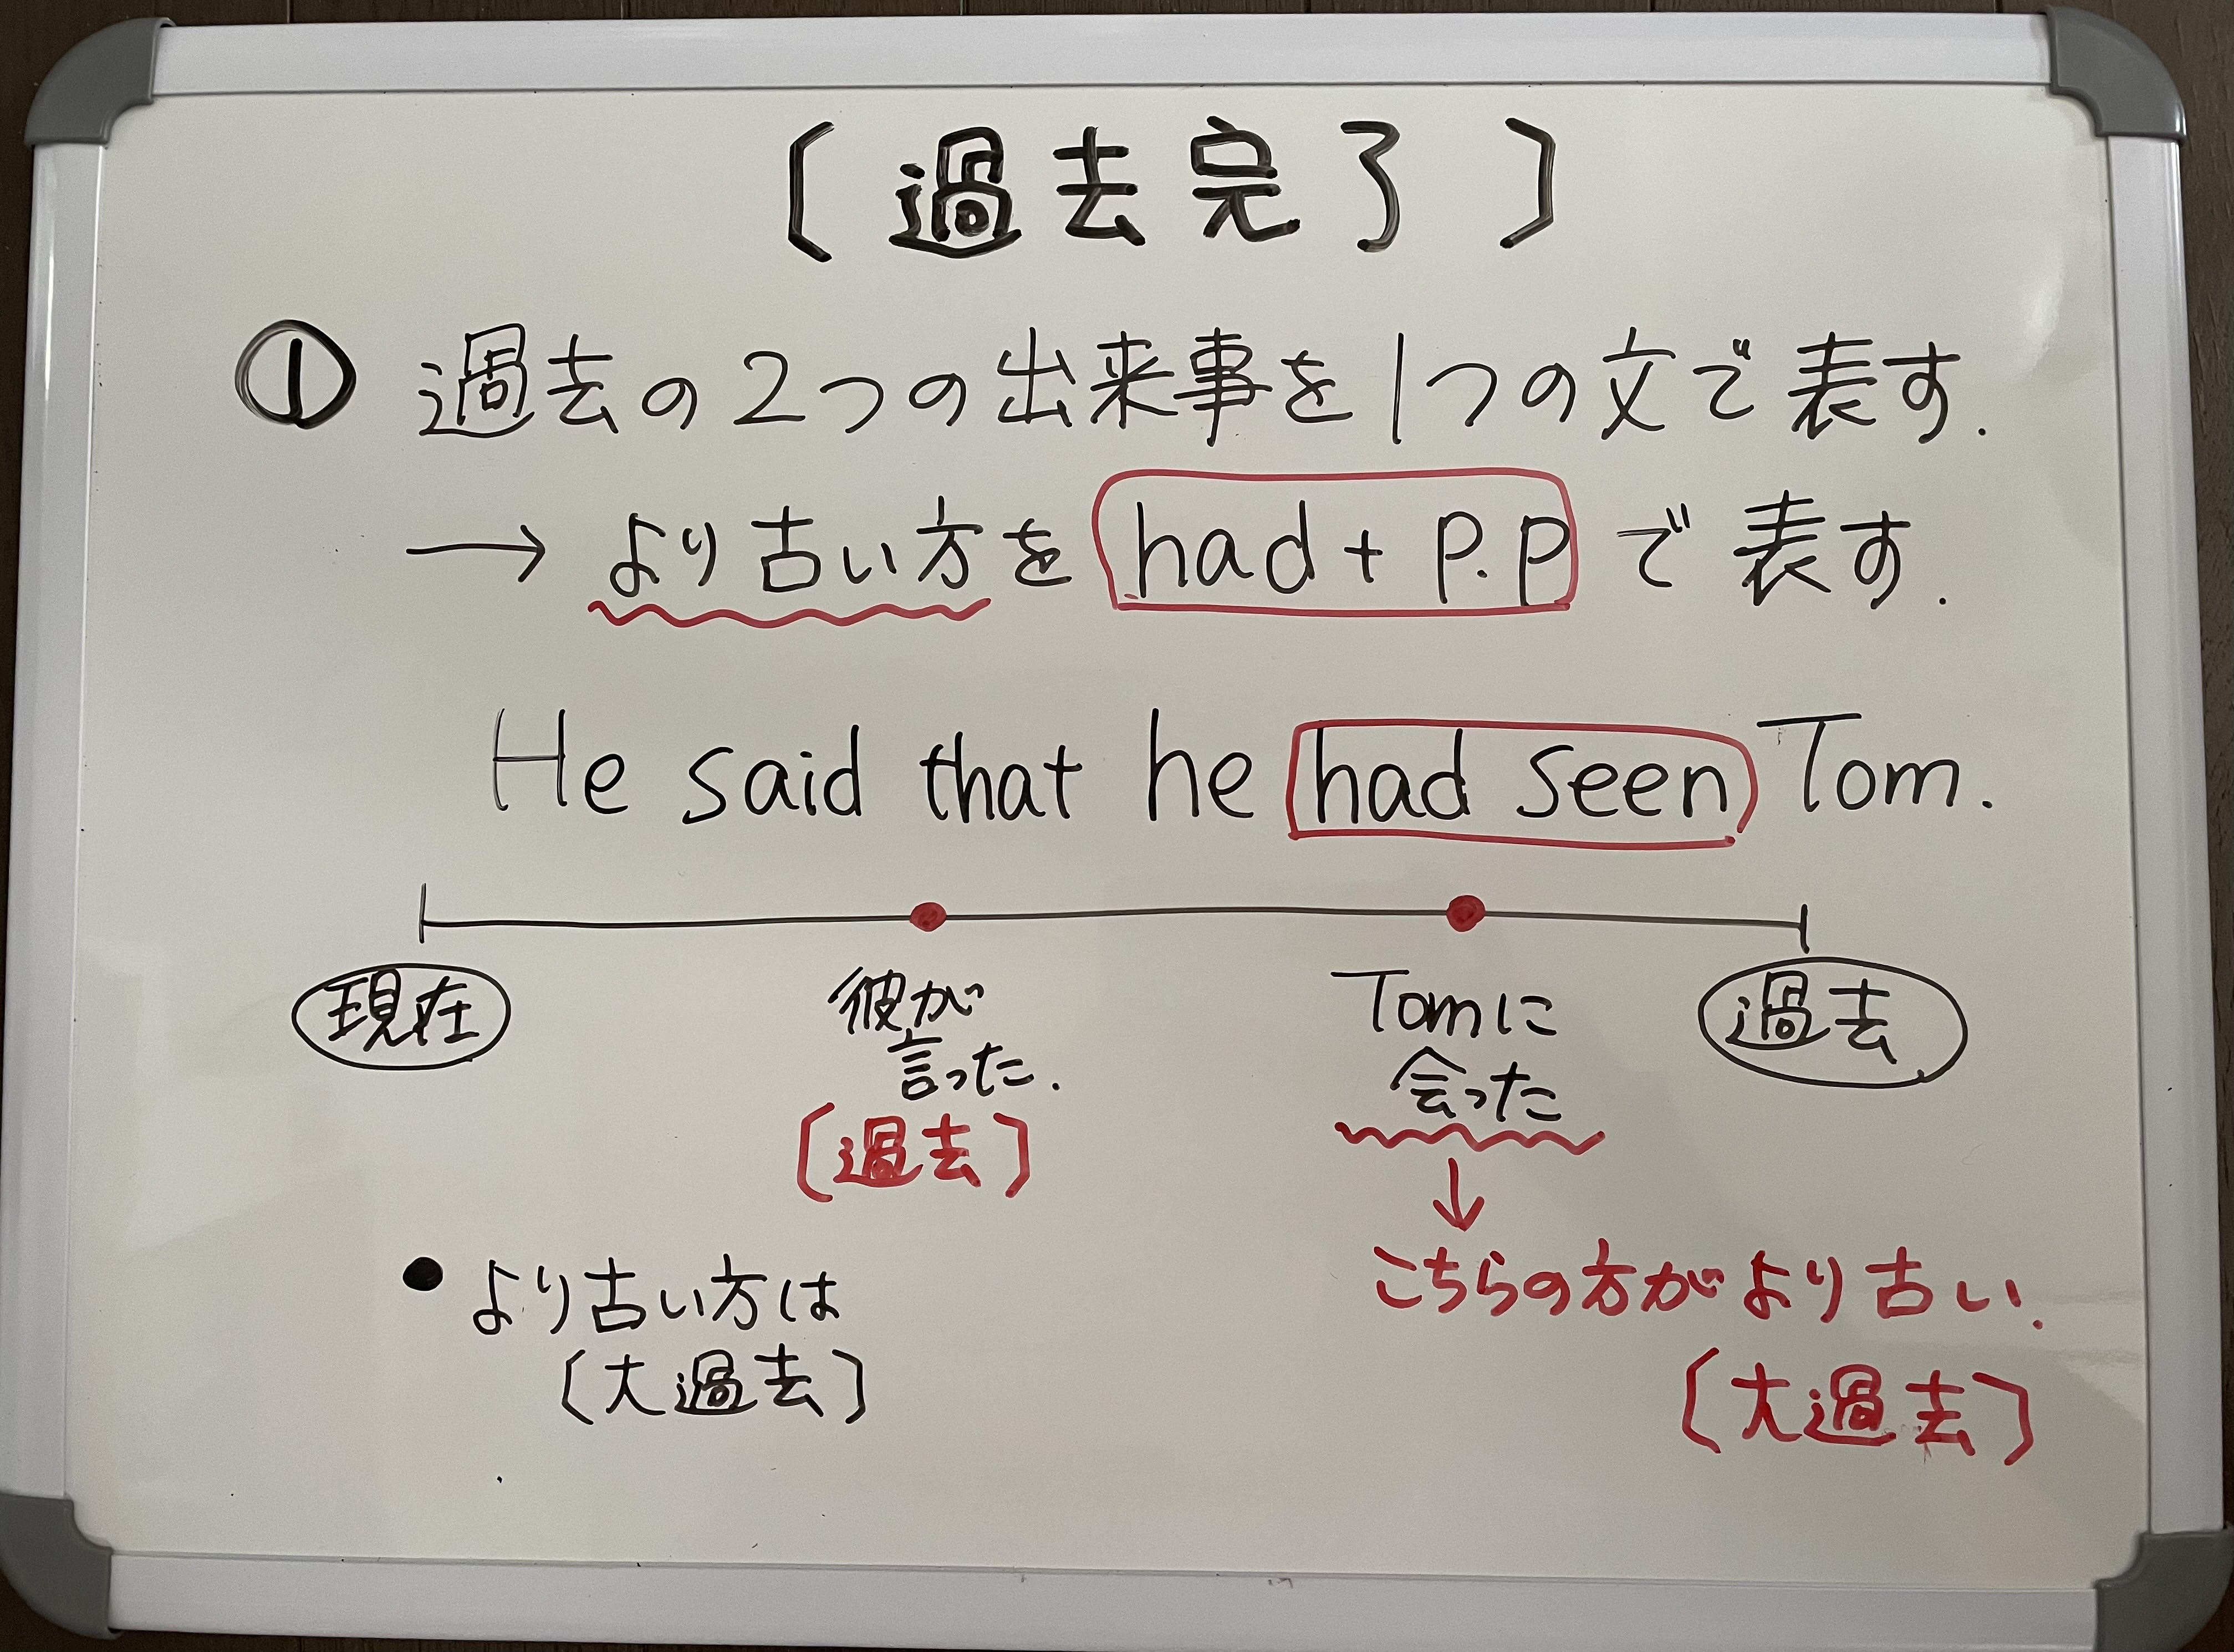 〔過去完了〕
① 過去の2つの出来事を1つの文で表す.
→ より古い方を had + p.p で表す.
He said that he had seen Tom.
現在
彼が
言った.
〔過去〕
Tomに
会った
↓
こちらの方がより古い.
〔大過去〕
過去
● より古い方は
〔大過去〕